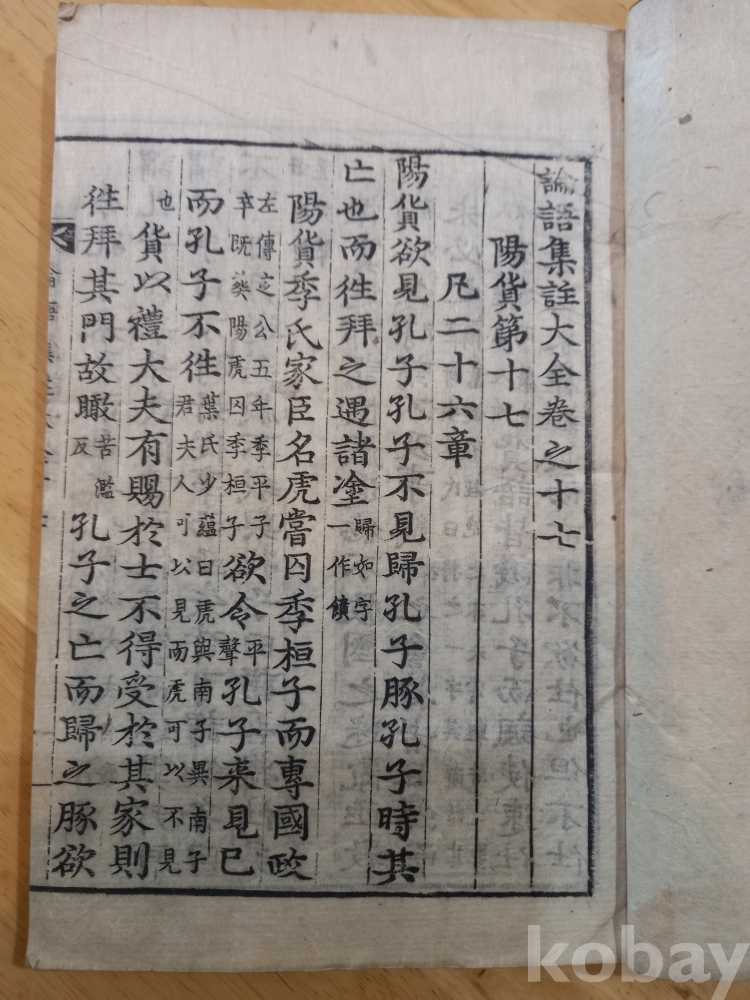 論語集註大全卷之十七
陽貨第十七
凡二十六章
陽貨欲見孔子孔子不見歸孔子豚孔子時其
亡也而徃拜之遇諸塗歸如字一作饋
陽貨季氏家臣名虎嘗囚季桓子而專國政
左傳定公五年季平子卒既葬陽虎囚季桓子欲令平聲孔子来見己
而孔子不徃葉氏少蘊曰虎與南子異南子君夫人可以見而虎可以不見
也貨以禮大夫有賜於士不得受於其家則
徃拜其門故瞰苦濫反孔子之亡而歸之豚欲
kobay